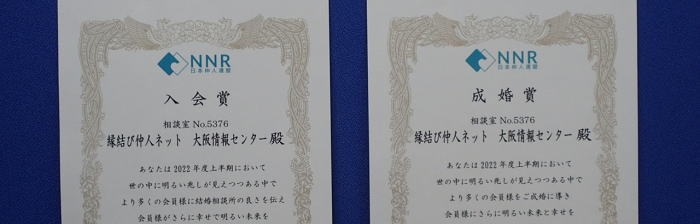 NNR
日本仲人連盟
入会賞
相談室 No.5376
縁結び仲人ネット 大阪情報センター 殿
あなたは 2022 年度上半期において
世の中に明るい兆しが見えつつある中で
より多くの会員様に結婚相談所の良さを伝え
会員様がさらに幸せで明るい未来を
NNR
日本仲人連盟
成婚賞
相談室 No.5376
縁結び仲人ネット 大阪情報センター 殿
あなたは 2022 年度上半期において
世の中に明るい兆しが見えつつある中で
より多くの会員様をご成婚に導き
会員様にさらに明るい未来と幸せを